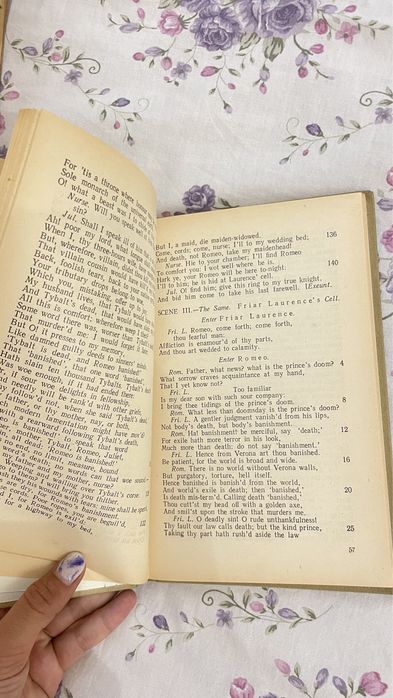 For 'tis a throne where
Sole monarch of the
O! what a beast was I to
Nurse. Will you speak well of
sin?
Jul. Shall I speak ill of
Ah! poor my lord, what
When I, thy three-hours wife,
But, wherefore, villain, didst thou
That villain cousin would have
Back, foolish tears, back to your
Your tributary drops belong to
Which you, mistaking, offer up to
My husband lives, that Tybalt would
And Tybalt's dead, that would have
All this is comfort; wherefore weep
Some word there was, worser than Tybalt's
That murder'd me: I would forget it
But O! it presses to my memory,
Like damned guilty deeds to sinners'
'Tybalt is dead, and Romeo banished!'
That 'banished,' that one word 'banished,'
Hath slain ten thousand Tybalts. Tybalt's
Was woe enough, if it had ended there:
if sour woe delights in fellowship,
needly will be rank'd with other griefs,
follow'd not, when she said 'Tybalt's dead,'
father, or thy mother, nay, or both,
modern lamentation might have mov'd?
with a rearward following Tybalt's death,
is banished!' to speak that word
mother, Tybalt, Romeo, Juliet,
all dead: 'Romeo is banished!'
no end, no limit, measure, bound
word's death; no words can that woe sound.
father and my mother, nurse?
Weeping and wailing over Tybalt's corse.
they his wounds with tears: mine shall be
dry, for Romeo's banishment.
cords. Poor ropes, you are beguil'd,
I, for Romeo is exil'd:
for a highway to my bed, 132
But I, a maid, die maiden-widowed.
Come, cords; come, nurse; I'll to my wedding bed; 136
And death, not Romeo, take my maidenhead!
Nurse. Hie to your chamber; I'll find Romeo
To comfort you: I wot well where he is.
Hark ye, your Romeo will be here to-night: 140
I'll to him; he is hid at Laurence' cell.
Jul. O! find him; give this ring to my true knight,
And bid him come to take his last farewell. [Exeunt.
SCENE III.—The Same. Friar Laurence's Cell.
Enter Friar Laurence.
Fri. L. Romeo, come forth; come forth,
thou fearful man:
Affliction is enamour'd of thy parts,
And thou art wedded to calamity.
Enter Romeo.
Rom. Father, what news? what is the prince's doom? 4
What sorrow craves acquaintance at my hand,
That I yet know not?
Fri. L. Too familiar
Is my dear son with such sour company:
I bring thee tidings of the prince's doom. 8
Rom. What less than doomsday is the prince's doom?
Fri. L. A gentler judgment vanish'd from his lips,
Not body's death, but body's banishment.
Rom. Ha! banishment! be merciful, say 'death;' 12
For exile hath more terror in his look,
Much more than death: do not say 'banishment.'
Fri. L. Hence from Verona art thou banished.
Be patient, for the world is broad and wide. 16
Rom. There is no world without Verona walls,
But purgatory, torture, hell itself.
Hence banished is banish'd from the world,
And world's exile is death; then 'banished,' 20
Is death mis-term'd. Calling death 'banished,'
Thou cutt'st my head off with a golden axe,
And smil'st upon the stroke that murders me.
Fri. L. O deadly sin! O rude unthankfulness!
Thy fault our law calls death; but the kind prince, 25
Taking thy part hath rush'd aside the law
57